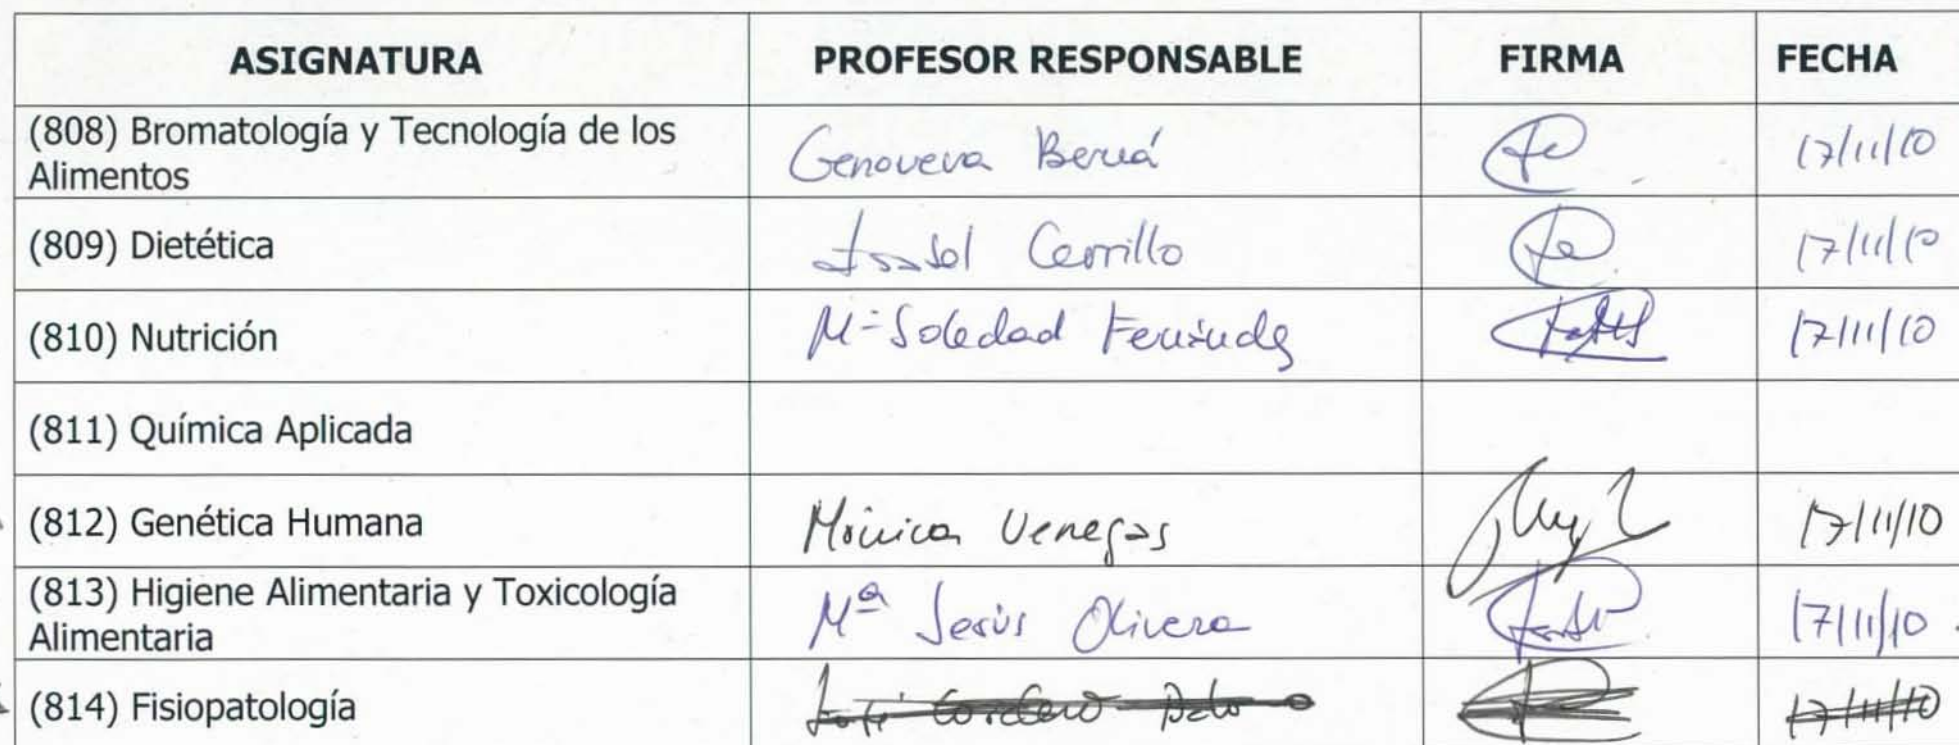 ASIGNATURA PROFESOR RESPONSABLE FIRMA FECHA
(808) Bromatología y Tecnología de los
Alimentos
Genoveva Berná
17/11/10
(809) Dietética Isabel Cerrillo 17/11/10
(810) Nutrición Mª Soledad Fernández 17/11/10
(811) Química Aplicada
(812) Genética Humana Mónica Venegas 17/11/10
(813) Higiene Alimentaria y Toxicología
Alimentaria
Mª Jesús Olivera
17/11/10
(814) Fisiopatología Cordero 17/11/10